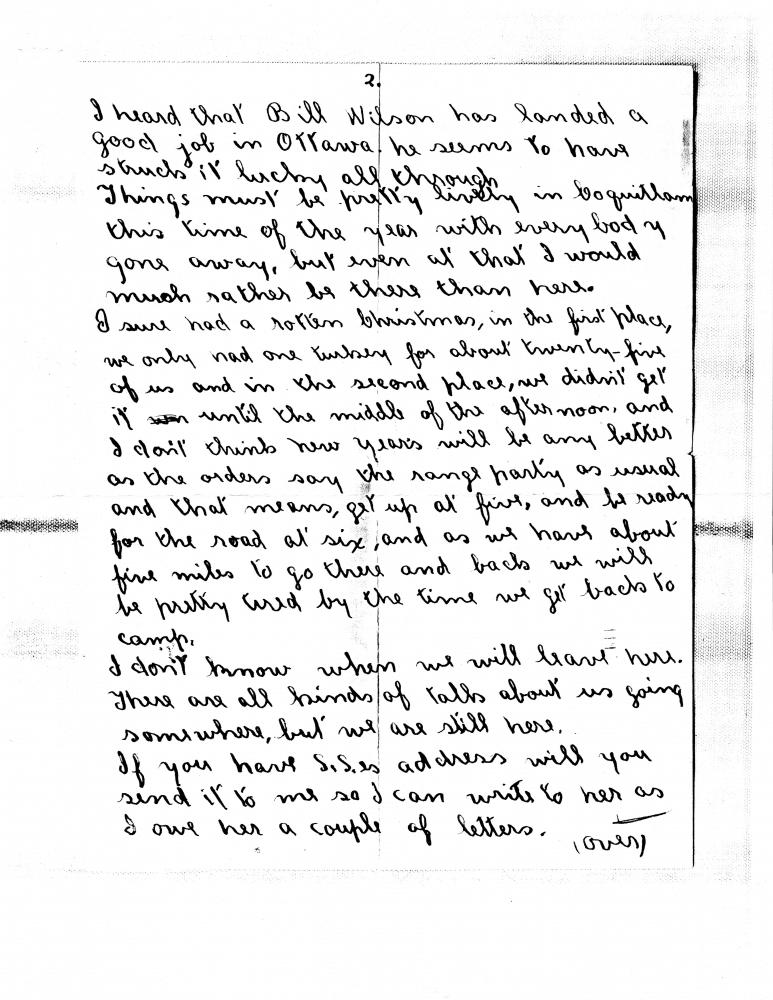 2.
I heard that Bill Wilson has landed a
good job in Ottawa. he seems to have
struck it lucky all through
Things must be pretty lively in Coquitlam
this time of the year with every body
gone away, but even at that I would
much rather be there than here.
I sure had a rotten Christmas, in the first place,
we only had one turkey for about twenty-five
of us and in the second place, we didn't get
it until the middle of the afternoon. and
I don't think new years will be any better
as the orders say the range party as usual
and that means, get up at five, and be ready
for the road at six, and as we have about
five miles to go there and back we will
be pretty tired by the time we get back to
camp.
I don't know when we will leave here.
There are all kinds of talks about us going
somewhere, but we are still here.
If you have S.S.es address will you
send it to me so I can write to her as
I owe her a couple of letters.
(over)